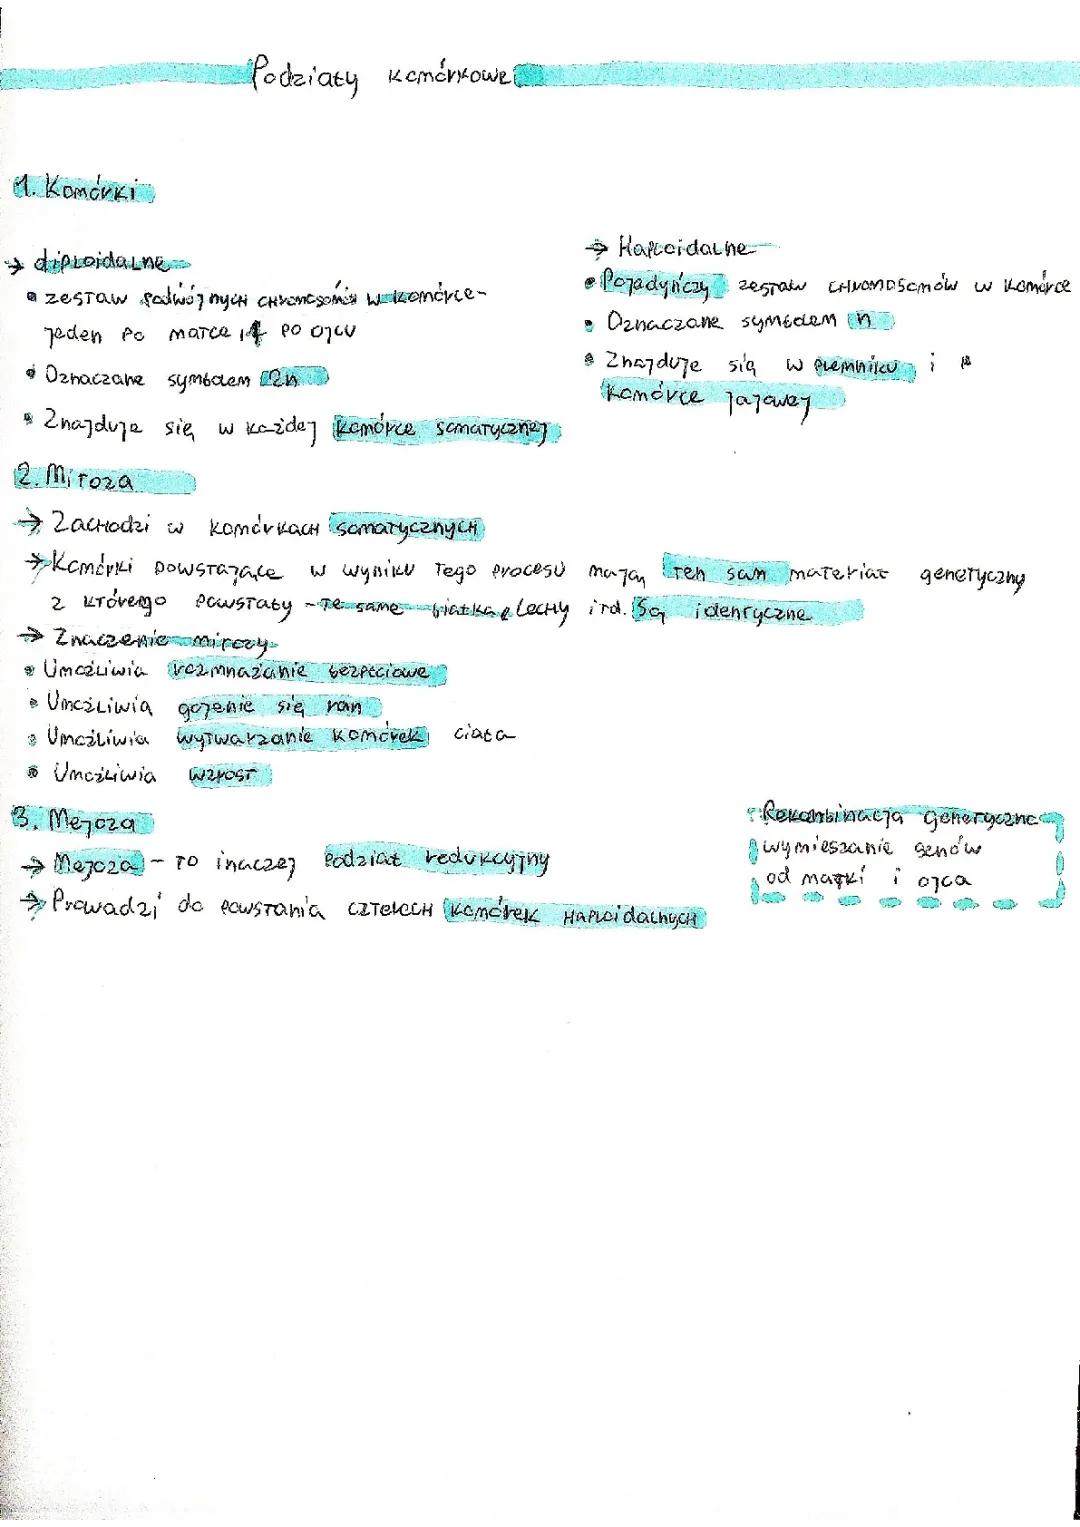 Podziały komórkowe
1. Komórki
→ diploidalne
• zestaw podwójnych chromosomów w komórce-
jeden po matce i 1 po ojcu
• Oznaczane symbolem 2n
• Znajduje się w każdej komórce somatycznej
→ Haploidalne
• Pojedyńczy zestaw chromosomów w komórce
• Oznaczane symbolem n
• Znajduje się w plemniku i
komórce jajowej
2. Mitoza
→ Zachodzi w komórkach somatycznych
→ Komórki powstające w wyniku tego procesu mają ten sam materiał genetyczny
z którego powstały - te same białka, cechy itd. Są identyczne
→ Znaczenie mitozy
• Umożliwia rozmnażanie bezpłciowe
• Umożliwia gojenie się ran
• Umożliwia wytwarzanie komórek ciała
• Umożliwia wzrost
3. Mejoza
→ Mejoza - to inaczej podział redukcyjny
→ Prowadzi do powstania czterech komórek haploidalnych
Rekombinacja genetyczna
wymieszanie genów
od matki i ojca